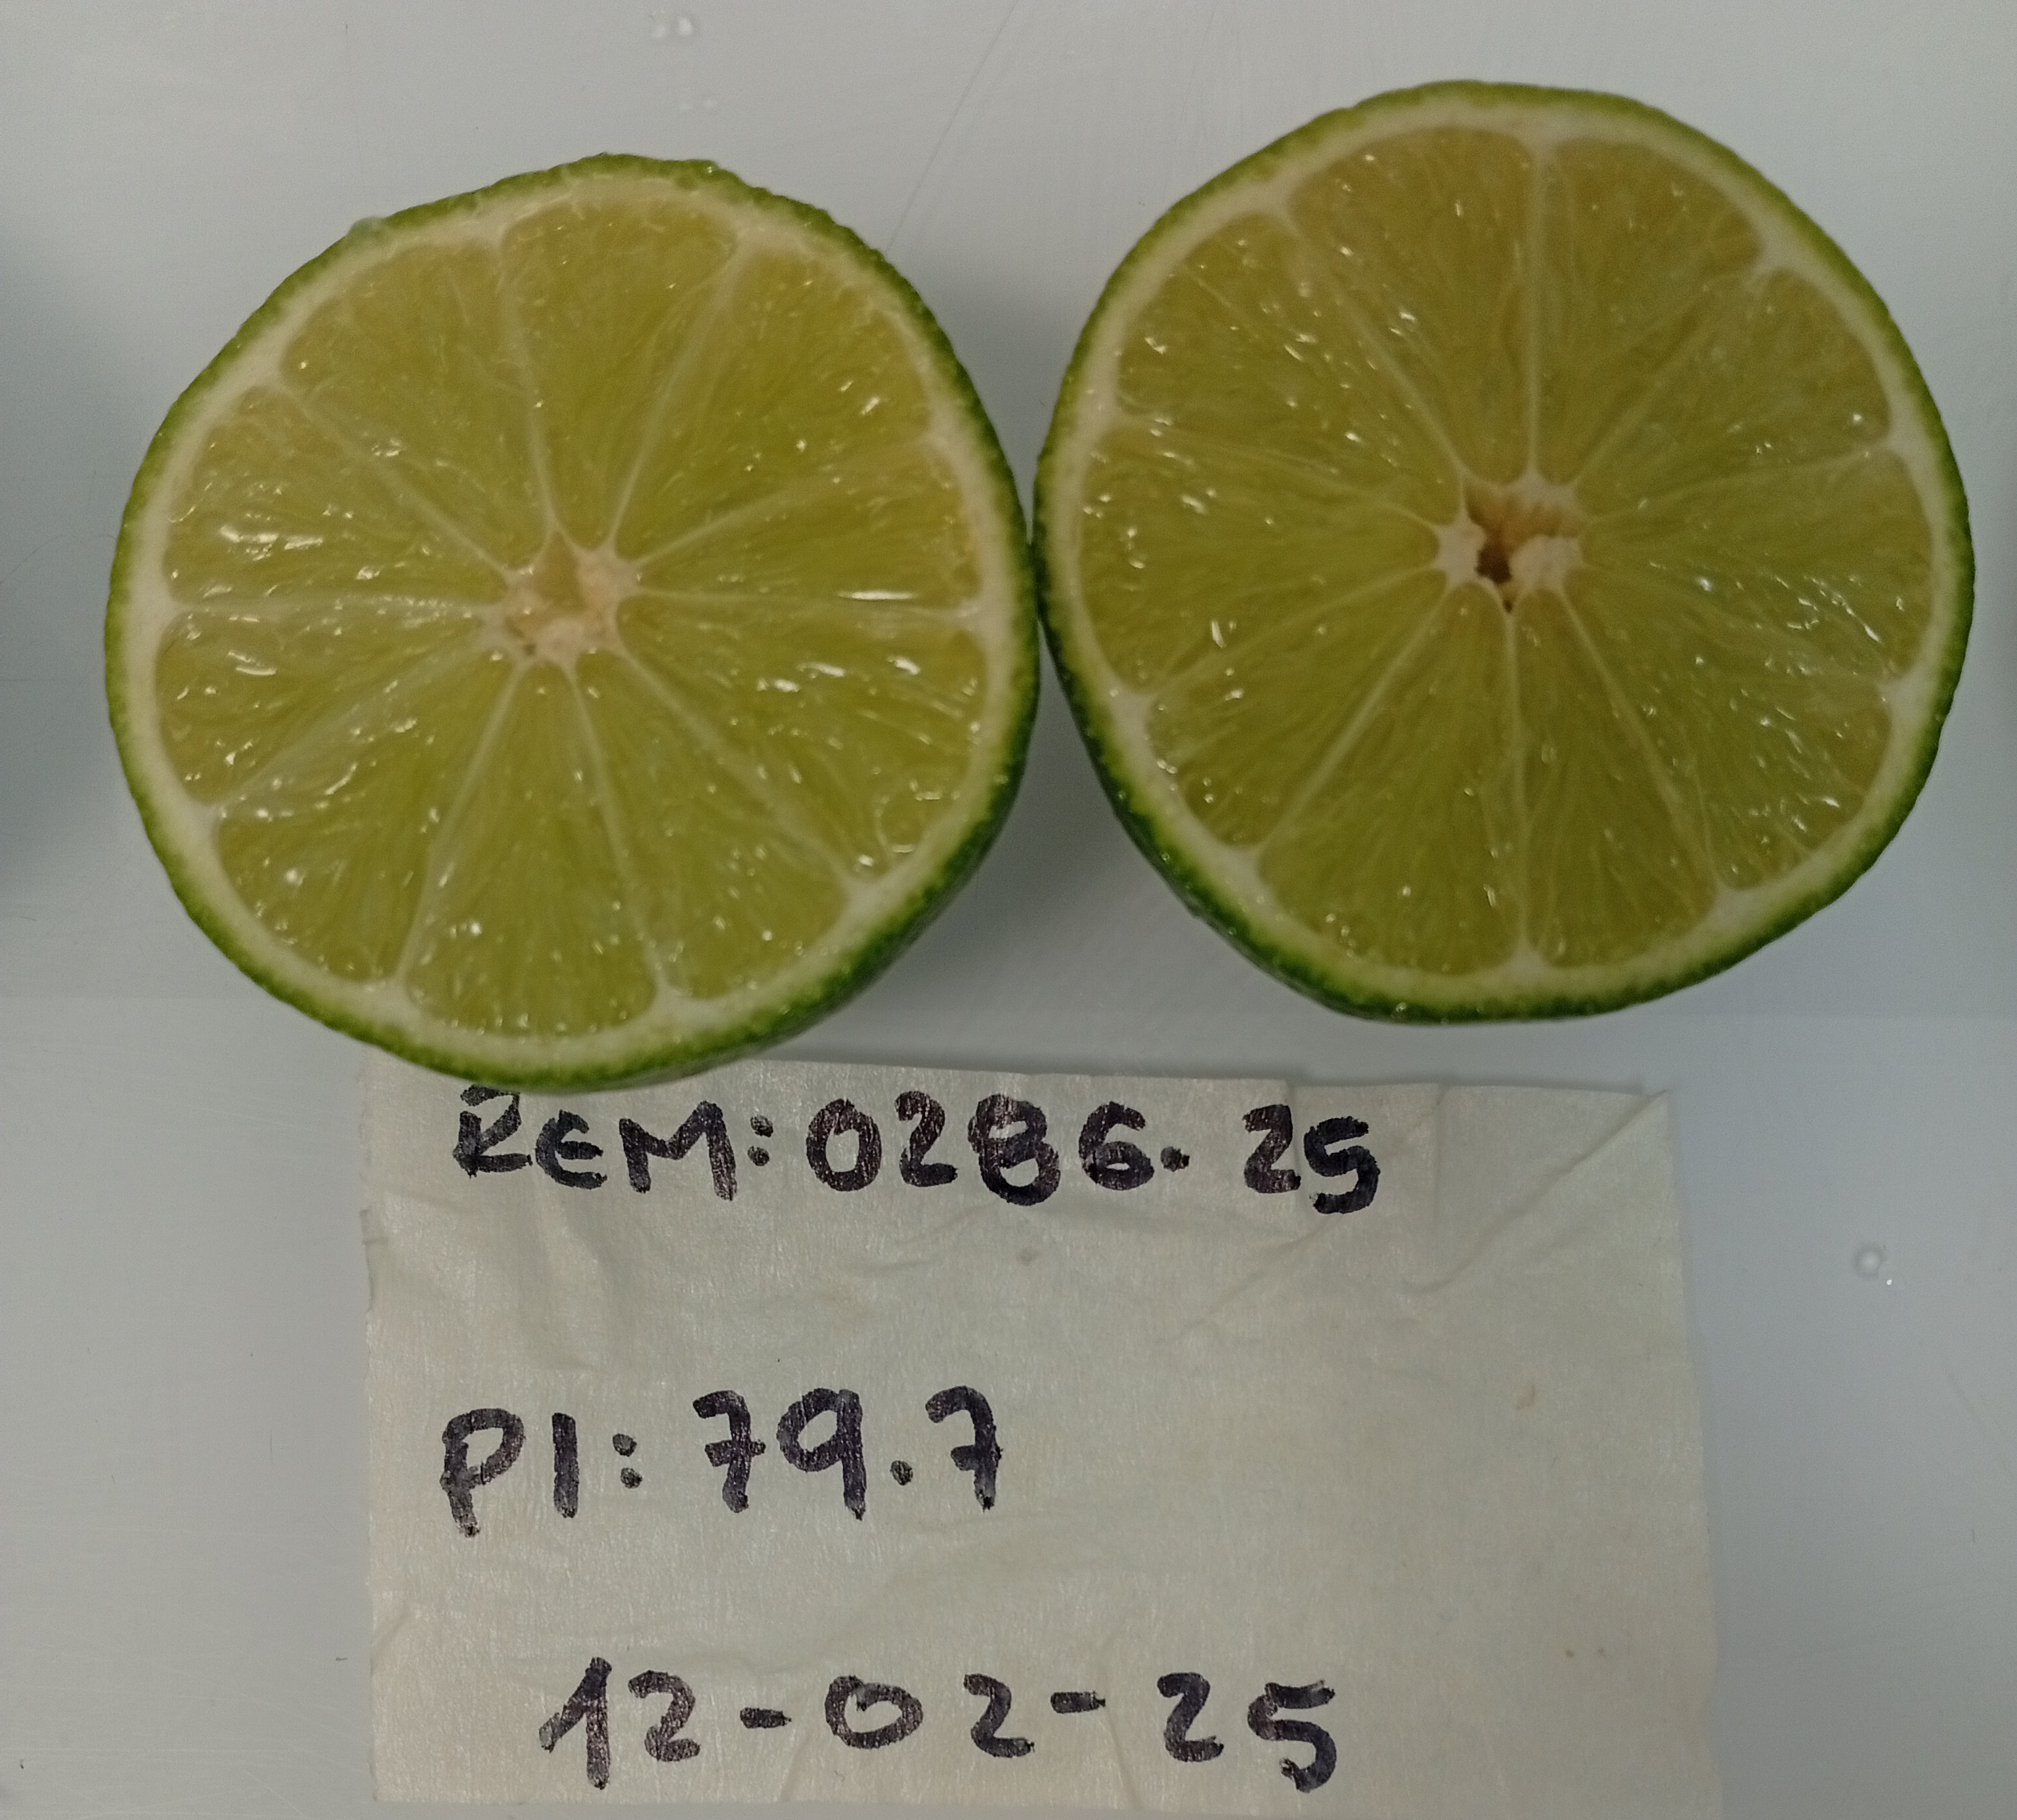 REM: 0286. 25
PI: 79.7
12-02-25